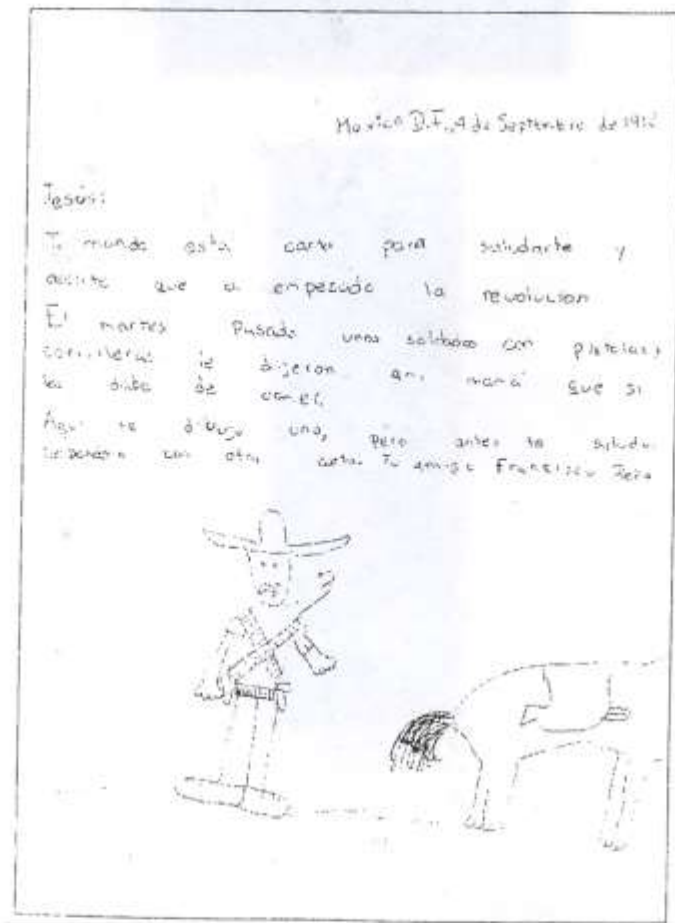 Mexico D.F., 4 de Septiembre de 191
Jesús:
Te mando esta carta para saludarte y
que a empesado la revolucion
El martes Pasado unos soldados con pistolas y
le dijeron a mi mamá que si
les daba de comer.
Aqui te dibujo uno, pero antes te saludo
con otra carta. Tu amigo Francisco